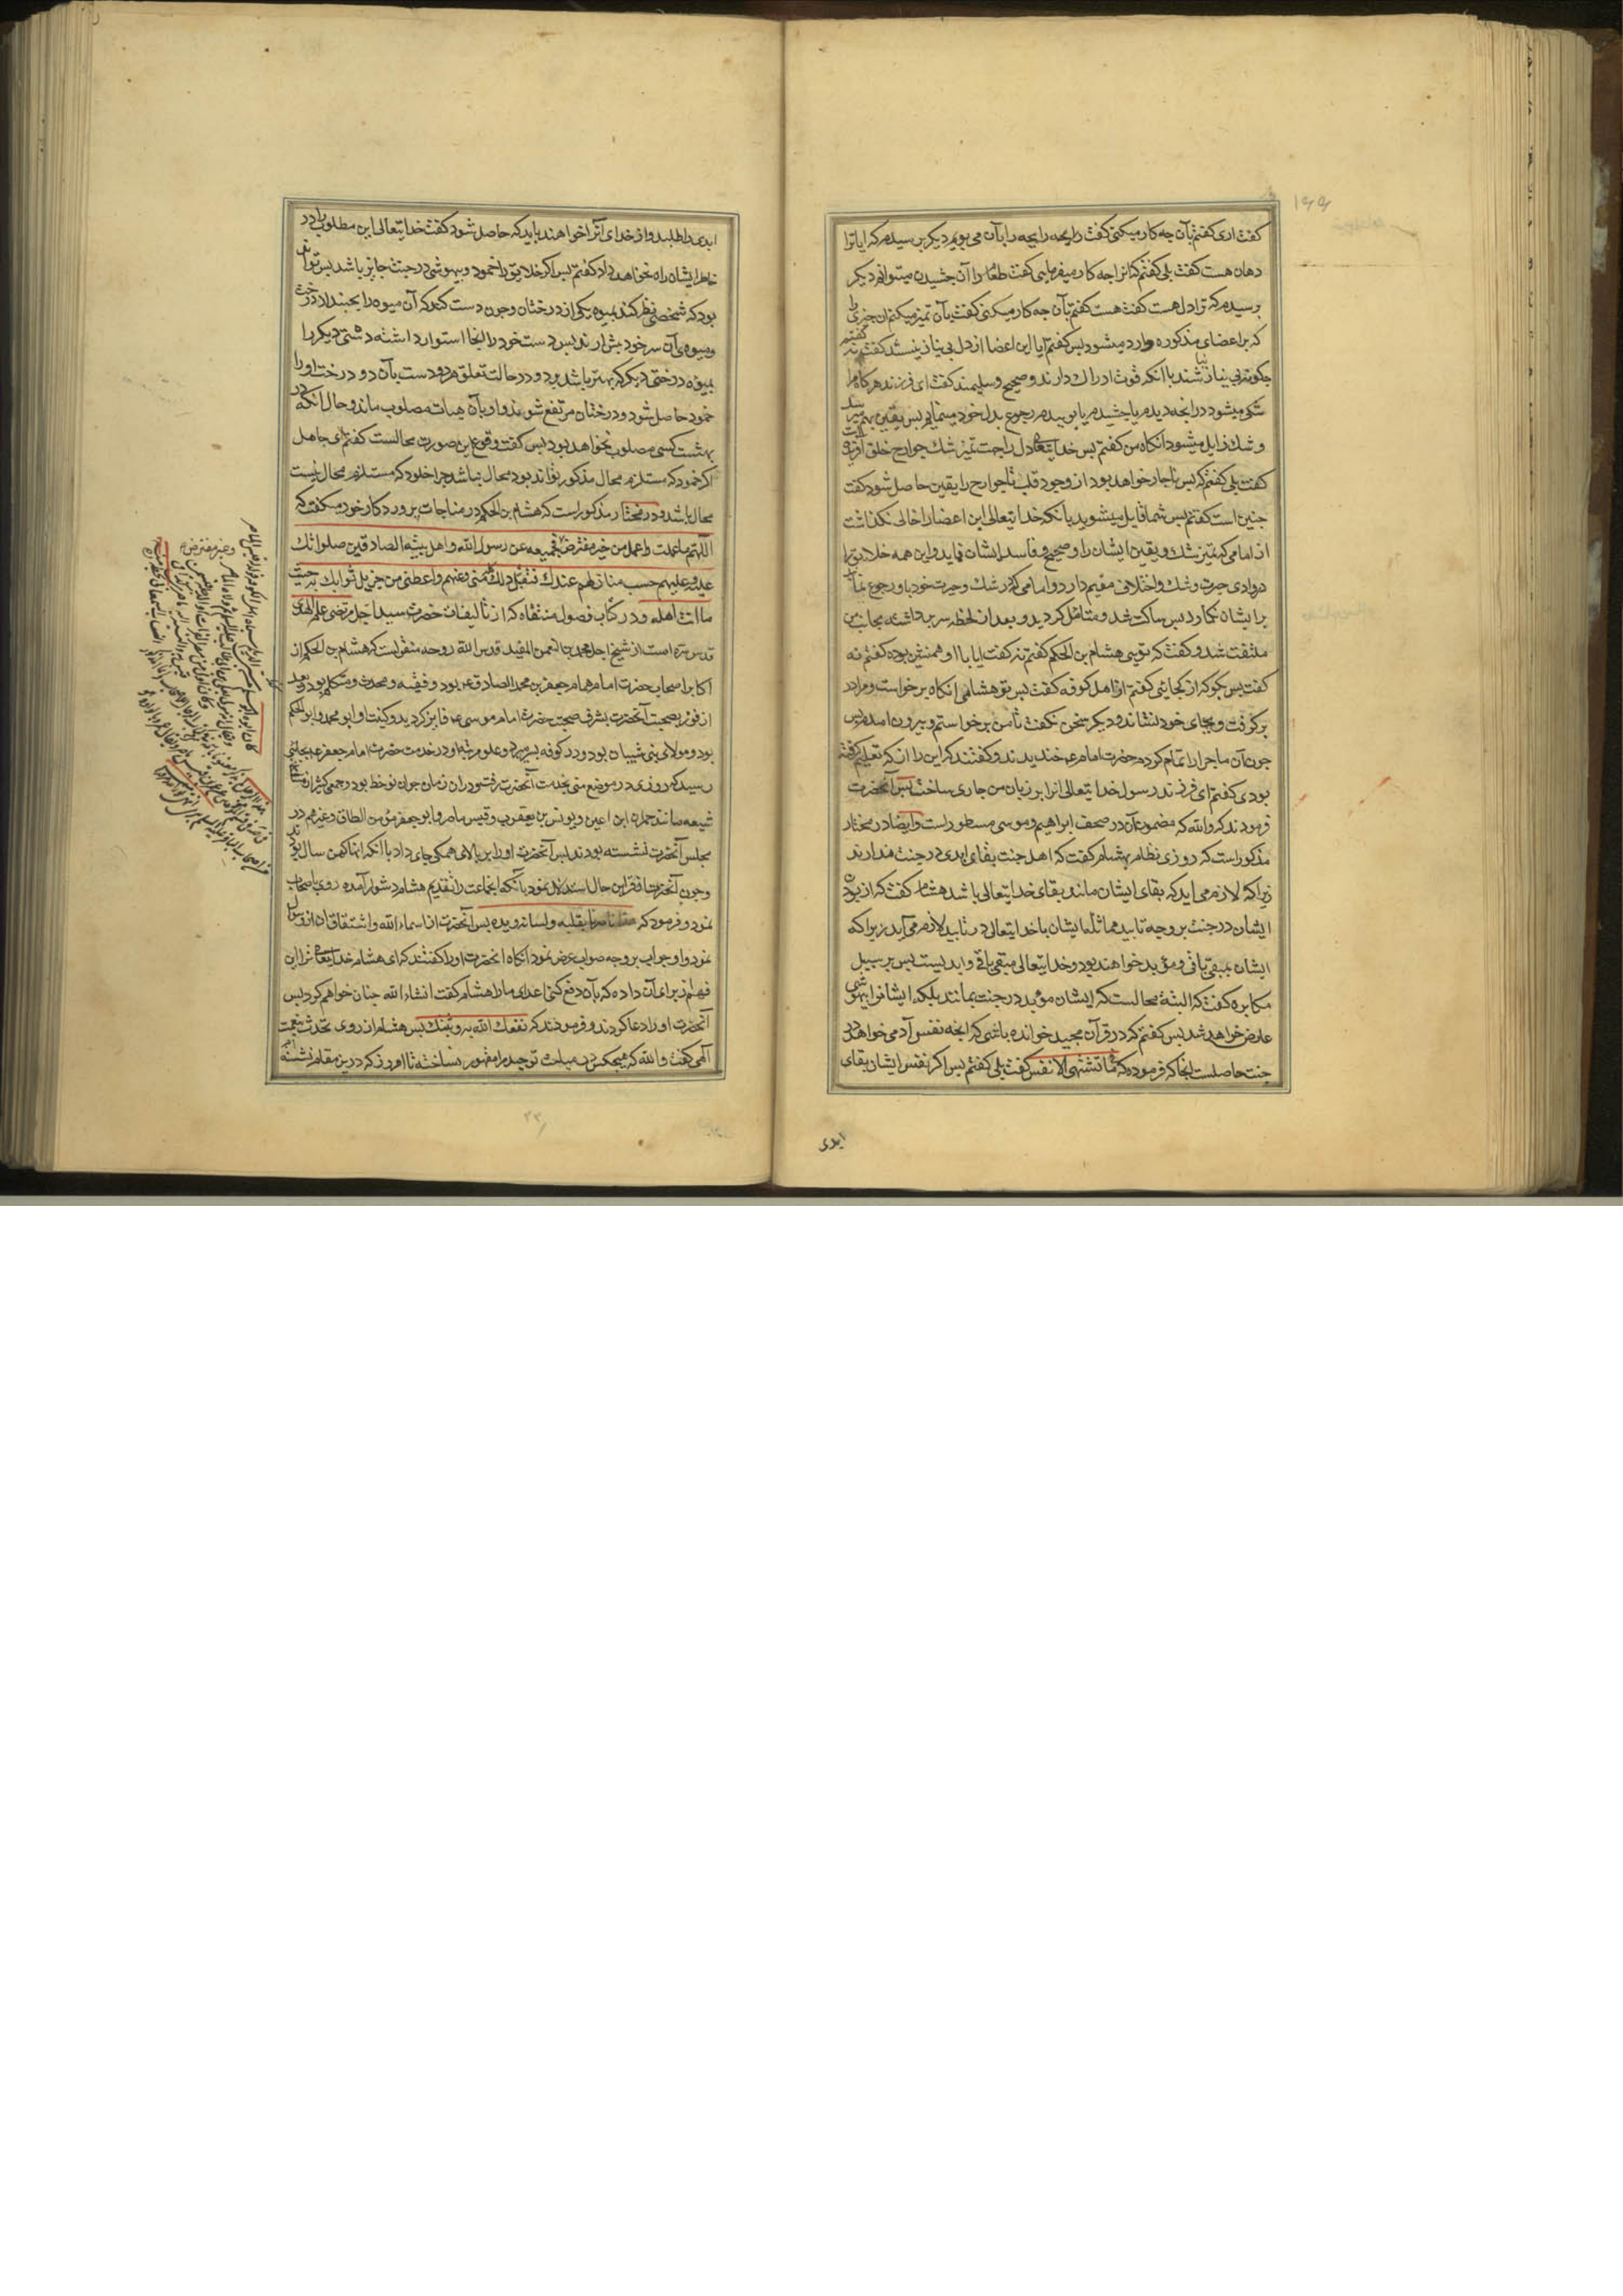 ۱۶۶
کفت اری کفتم بآن چه کار میکنی کفت رایحه رایحه را بآن می بویم دیکر پرسیدم که ایا ترا
دهان هست کفت بلی کفتم که انرا چه کار میفرمایی کفت طعم را آن چشیدن میتوانم دیکر
پرسیدم که ترا دل هست کفت هست کفتم بآن چه کار میکنی کفت بآن تمیز میکنم ان چیزی را
که بر اعضای مذکوره وارد میشود پس کفتم ایا این اعضا از دل بی نیاز نیستند کفت نه کفتم
چکونه بی نیاز نباشند با آنکه قوت ادراک دارند و صحیح و سلیمند کفت ای فرزند هرکاه مرا
شکی میشود در آنچه دیدم یا چشیدم یا بوییدم رجوع بدل خود مینمایم پس یقین بهم میرسد
و شک زایل میشود انکاه من کفتم پس خدایتعالی دل را جهت تمیز شک جوارح خلق آفریده است
کفت بلی کفتم که پس ناچار خواهد بود از وجود قلب تا جوارح را یقین حاصل شود کفت
چنین است کفتم پس شما قایل میشوید بآنکه خدایتعالی این اعضا را خالی نکذاشت
از امامی که تمیز شک و یقین ایشان را و صحیح و فاسد ایشان نماید و این همه خلایق را
در وادی حیرت و شک و اختلاف مقیم دارد و امامی که در شک و حیرت خود باو رجوع نمایند
برایشان نکمارد پس ساکت شد و متامل کردید و بعد از لحظه سر برداشته بجانب من
ملتفت شد و کفت که تویی هشام بن الحکم کفتم نه کفت ایا با او همنشین بوده کفتم نه
کفت پس بکو که از کجایی کفتم از اهل کوفه کفت پس تو هشامی انکاه برخواست و مرا در
بر کرفت و بجای خود نشاند و دیکر سخن نکفت تا من برخواستم و بیرون امدم پس
چون آن ماجرا را تمام کردم حضرت امام ع خندیدند و کفتند که این را از که تعلیم کرفته
بودی کفتم ای فرزند رسول خدایتعالی انرا بر زبان من جاری ساخت پس آنحضرت
فرمودند که والله که مضمون آن در صحف ابراهیم و موسی مسطور است و ایضا در مختار
مذکور است که روزی نظام بهشام کفت که اهل جنت بقای ابدی در جنت ندارند
زیرا که لازم می اید که بقای ایشان مانند بقای خدایتعالی باشد هشام کفت که از بودن
ایشان در جنت بر وجه تابید مماثله ایشان با خدایتعالی در تابید لازم می آید زیرا که
ایشان بمبقی باقی و مؤبد خواهند بود و خدایتعالی مبقی باقی و ابد نیست پس بر سبیل
مکابره کفت که البته محالست که ایشان مؤبد در جنت بمانند بلکه ایشانرا بیهوشی
عارض خواهد شد پس کفتم که در قرآن مجید خوانده باشی که انچه نفس آدمی خواهد در
جنت حاصلست انجا که فرموده که فیها ما تشتهی الانفس کفت بلی کفتم پس اکر نفس ایشان بقای
ابدی
ابدی را طلبد و از خدای آنرا خواهند باید که حاصل شود کفت خدایتعالی این مطلوب را در
خاطر ایشان راه نخواهد داد کفتم پس اکر خلایق را خمود و بیهوشی در جنت جایز باشد پس تواند
بود که شخصی نظر کند بمیوه یکی از درختان و چون دست کند که آن میوه را بچیند از درخت
و میوه آن سر خود پیش آرند پس دست خود را انجا استوار داشته دستی دیکر را
بمیوه درختی دیکر که بهتر باشد برد و در حالت تعلق هر دو دست بآن دو درخت او را
خمود حاصل شود و درختان مرتفع شوند و او بآن هیات مصلوب ماند و حال انکه در
بهشت کسی مصلوب نخواهد بود پس کفت وقوع این صورت محالست کفتم ای جاهل
اکر خمود که مستلزم محال مذکور تواند بود محال نباشد چرا خلود که مستلزم محال نیست
محال باشد و در مختار مذکور است که هشام بن الحکم در مناجات پروردکار خود میکفت که
اللهم ما عملت واعمل من خیر مفترض فجمیعه عن رسول الله واهل بیته الصادقین صلواتک
علیه وعلیهم حسب منازلهم عندک فتقبل ذلک کله منی وعنهم واعطنی من جزیل ثوابک به حیث
ما انت اهله و در کتاب فصول منتقاه که از تالیفات حضرت سید اجل مرتضی علم الهدی
قدس سره است از شیخ اجل محمد بن النعمن المفید قدس الله روحه منقولست که هشام بن الحکم از
اکابر اصحاب حضرت امام همام جعفر بن محمد الصادق ع بود و فقیه و محدث و متکلم بود و بعد
از فوز بصحبت آنحضرت بشرف صحبت حضرت امام موسی ع فایز کردید و کنیت او ابو محمد و ابو الحکم
بود و مولای بنی شیبان بود و در کوفه بسر میبرد و علو مرتبه او در خدمت حضرت امام جعفر ع بجائی
رسید که روزی در موضع منی بخدمت آنحضرت رفت و در ان زمان جوان نو خط بود و جمعی کثیر از مشایخ
شیعه مانند حمران ابن اعین و یونس بن یعقوب و قیس ماصر و ابو جعفر مؤمن الطاق و غیرهم در
مجلس آنحضرت نشسته بودند پس آنحضرت او را بر بالای همکی جای داد با انکه انها کهن سال بودند
و چون آنحضرت از قراین حال استدلال نمود بآنکه انجماعت را تقدیم هشام دشوار آمده روی باصحاب
نمود و فرمود که هذا ناصرنا بقلبه ولسانه ویده پس آنحضرت از اسماء الله و اشتقاق ان از وی سؤال
نمود و او جواب بر وجه صواب عرض نمود انکاه انحضرت او را کفتند که ای هشام خدایتعالی ترا این
فهم از برای آن داده که بآن دفع کنی اعدای ما را هشام کفت انشاء الله چنان خواهم کرد پس
آنحضرت او را دعا کردند و فرمودند که نفعک الله به وثبتک پس هشام از روی تحدث نعمت
الهی کفت والله که هیچکس در مباحث توحید مرا مقهور نساخته تا امروز که درین مقام نشسته ام